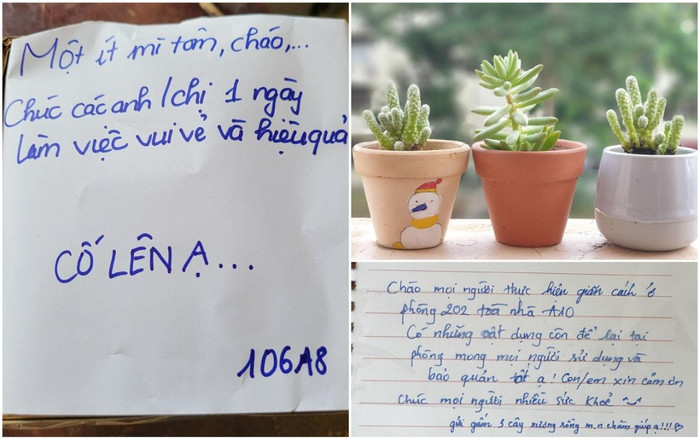 Một ít mì tôm, cháo,...
Chúc các anh/chị 1 ngày
làm việc vui vẻ và hiệu quả
CỐ LÊN Ạ...
106A8
Chào mọi người thực hiện giãn cách ở
phòng 202 toà nhà A10
Có những vật dụng còn để lại tại
phòng mong mọi người sử dụng và
bảo quản tốt ạ! Con/em xin cảm ơn
Chúc mọi người nhiều sức khoẻ
gửi gắm 3 cây xương rồng m.n chăm giúp ạ!!!